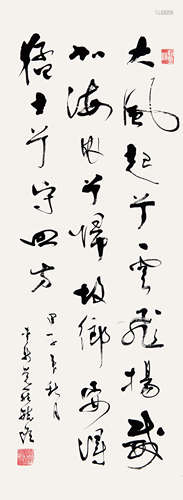 大風起兮雲飛揚威
加海内兮歸故鄉安得
猛士兮守四方
年秋月